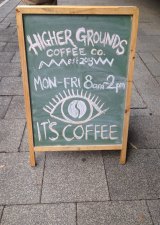 HIGHER GROUNDS
COFFEE CO.
MON-FRI 8am-2pm
IT'S COFFEE